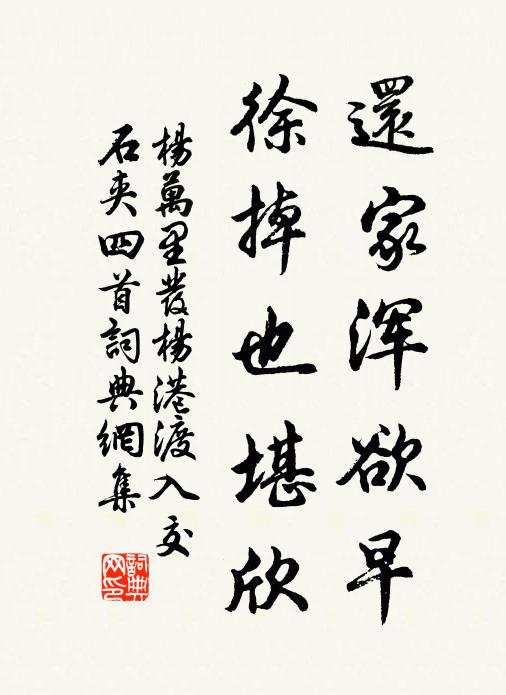 還家浑欲早
徐掉也堪欣
楊萬里發楊港渡入交
石夾四首詞典網集
詞典
网印